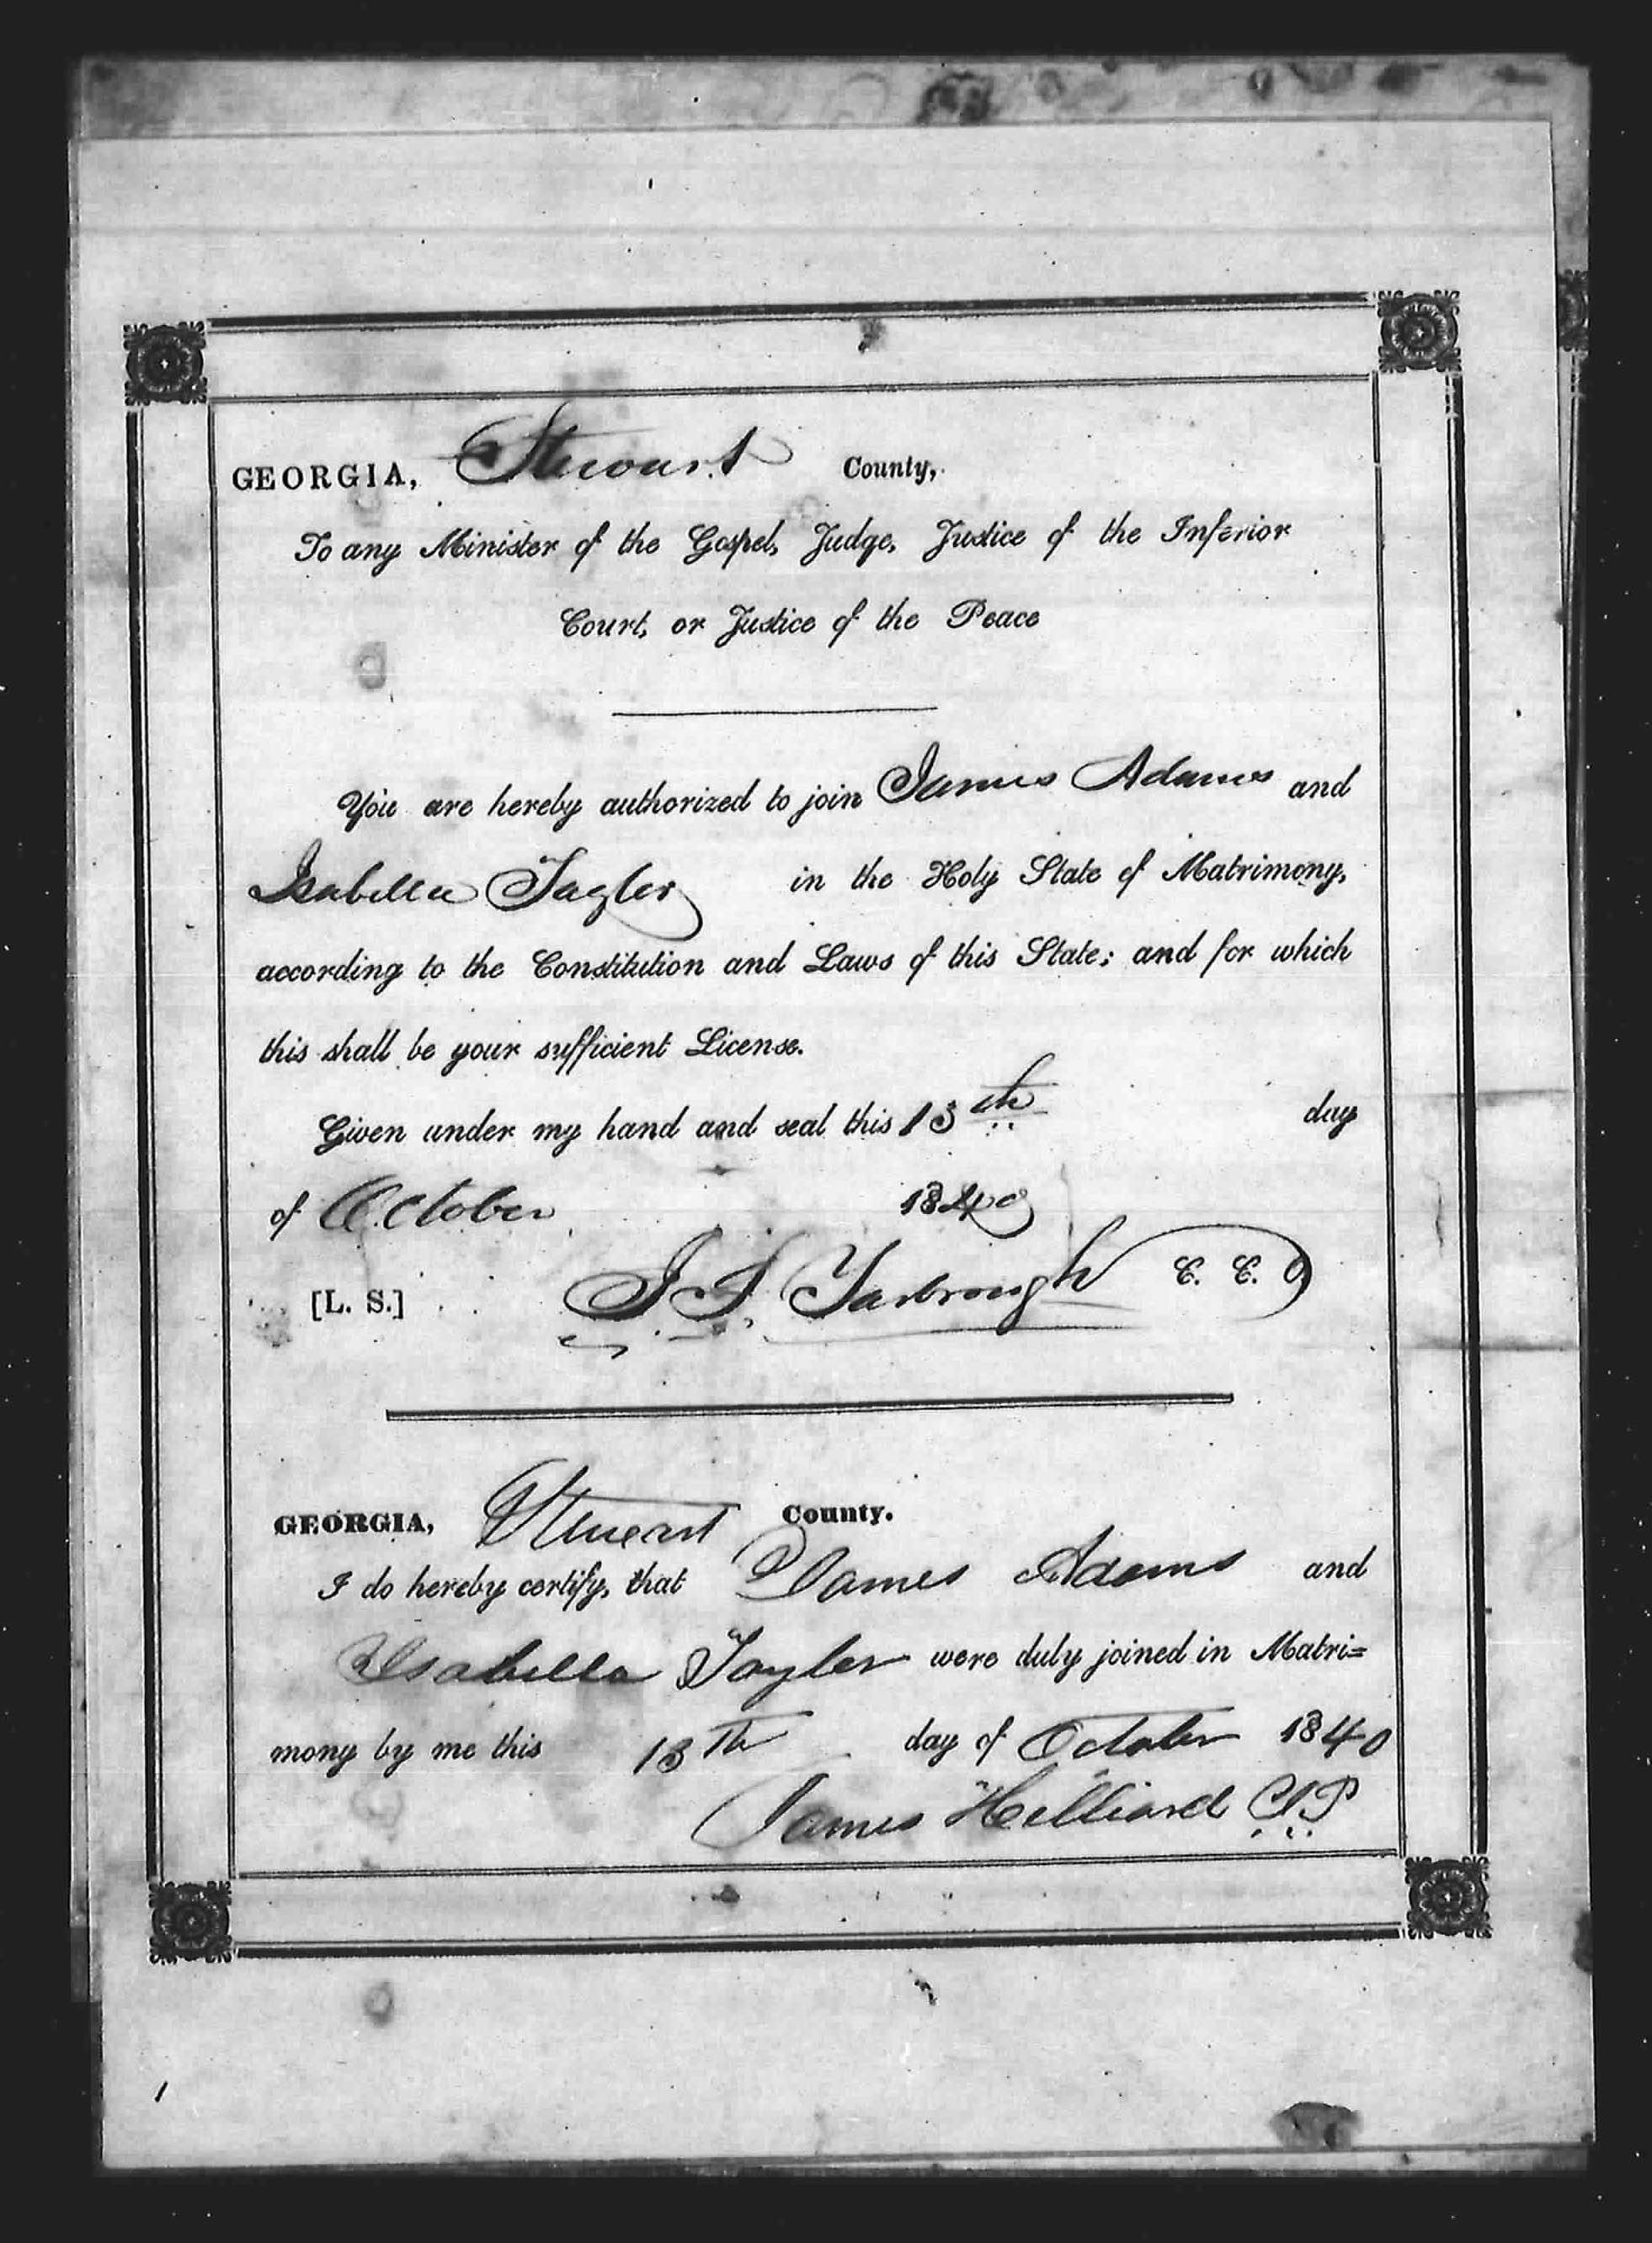 GEORGIA, Stewart County,
To any Minister of the Gospel, Judge, Justice of the Inferior
Court, or Justice of the Peace
You are hereby authorized to join James Adams and
Isabella Taylor in the Holy State of Matrimony,
according to the Constitution and Laws of this State; and for which
this shall be your sufficient License.
Given under my hand and seal this 13th day
of October 1840
[L. S.] Yarbrough C. C. O.
GEORGIA, Stewart County.
I do hereby certify, that James Adams and
Isabella Taylor were duly joined in Matri=
mony by me this 13th day of October 1840
James Hilliard JP